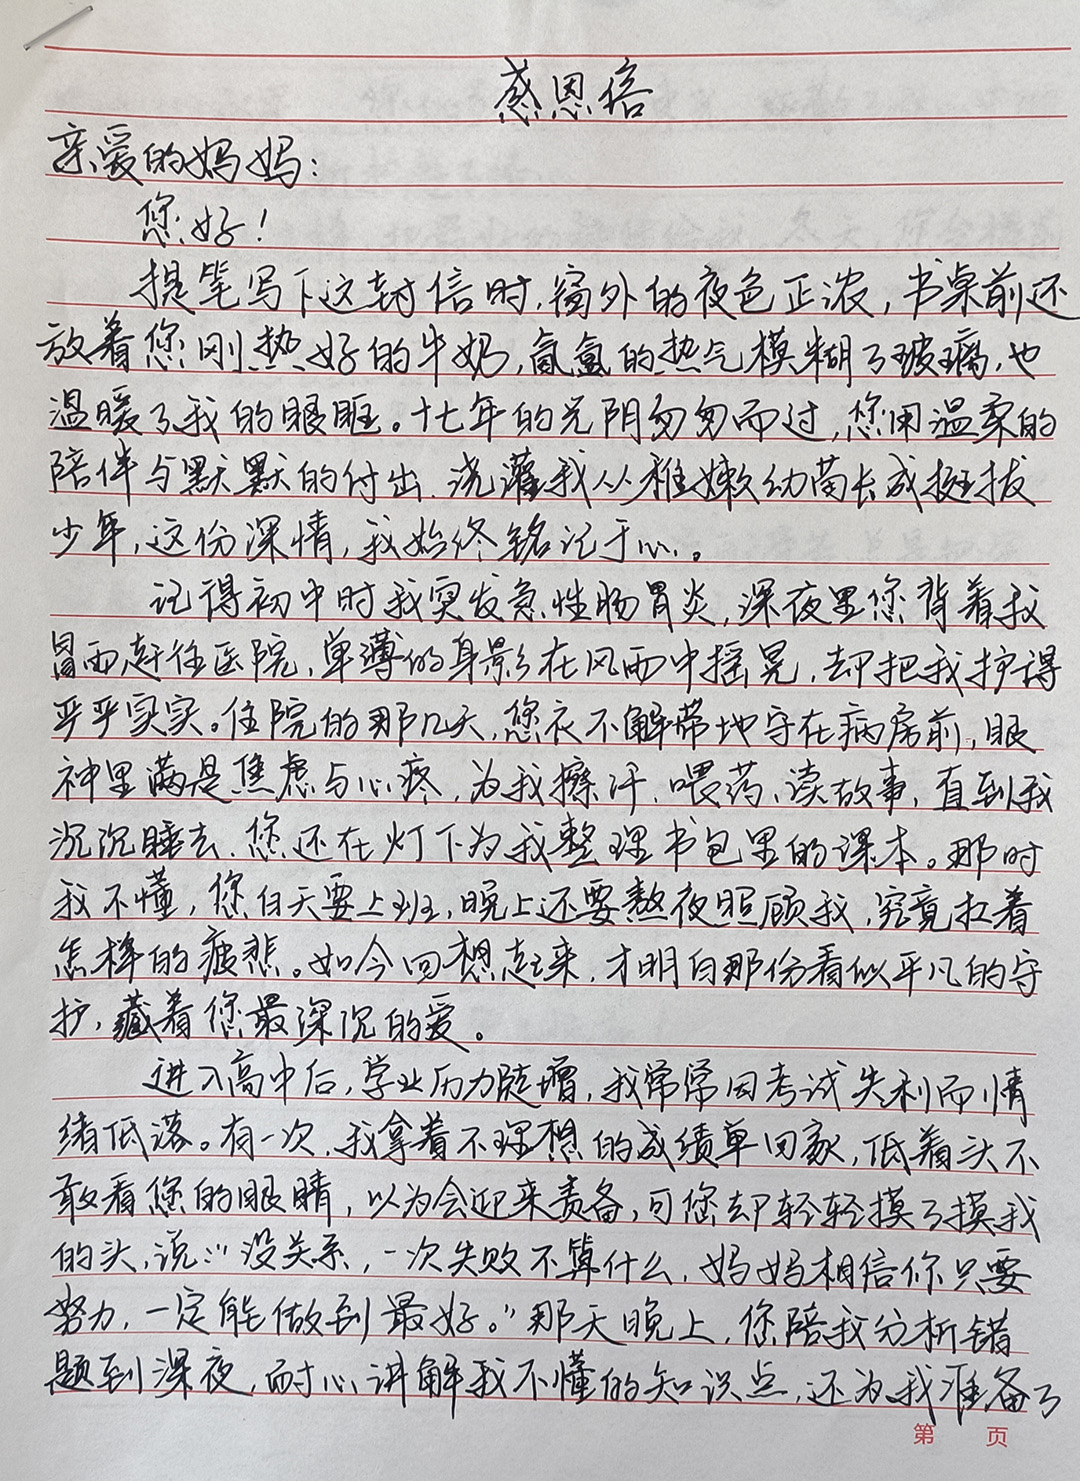 感恩信
亲爱的妈妈：
您好！
提笔写下这封信时，窗外的夜色正浓，书桌前还
放着您刚热好的牛奶，氤氲的热气模糊了玻璃，也
温暖了我的眼眶。十七年的光阴匆匆而过，您用温柔的
陪伴与默默的付出，浇灌我从稚嫩幼苗长成挺拔
少年，这份深情，我始终铭记于心。
记得初中时我突发急性肠胃炎，深夜里您背着我
冒雨赶往医院，单薄的身影在风雨中摇晃，却把我护得
严严实实。住院的那几天，您衣不解带地守在病房前，眼
神里满是焦虑与心疼，为我擦汗、喂药、读故事，直到我
沉沉睡去，您还在灯下为我整理书包里的课本。那时
我不懂，您白天要上班，晚上还要熬夜照顾我，究竟扛着
怎样的疲惫。如今回想起来，才明白那份看似平凡的守
护，藏着您最深沉的爱。
进入高中后，学业压力陡增，我常常因考试失利而情
绪低落。有一次，我拿着不理想的成绩单回家，低着头不
敢看您的眼睛，以为会迎来责备，可您却轻轻摸了摸我
的头，说：“没关系，一次失败不算什么，妈妈相信你只要
努力，一定能做到最好。”那天晚上，您陪我分析错
题到深夜，耐心讲解我不懂的知识点，还为我准备了
第 页